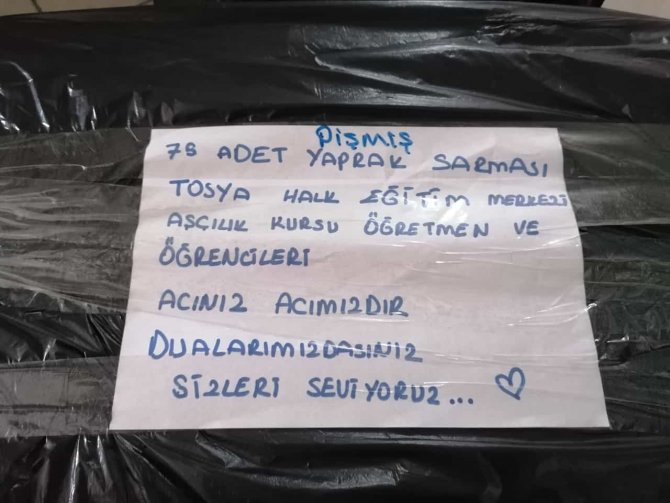 PİŞMİŞ
75 ADET YAPRAK SARMASI
TOSYA HALK EĞİTİM MERKEZİ
AŞÇILIK KURSU ÖĞRETMEN VE
ÖĞRENCİLERİ
ACINIZ ACIMIZDIR
DUALARIMIZDASINIZ
SİZLERİ SEVİYORUZ... ♡